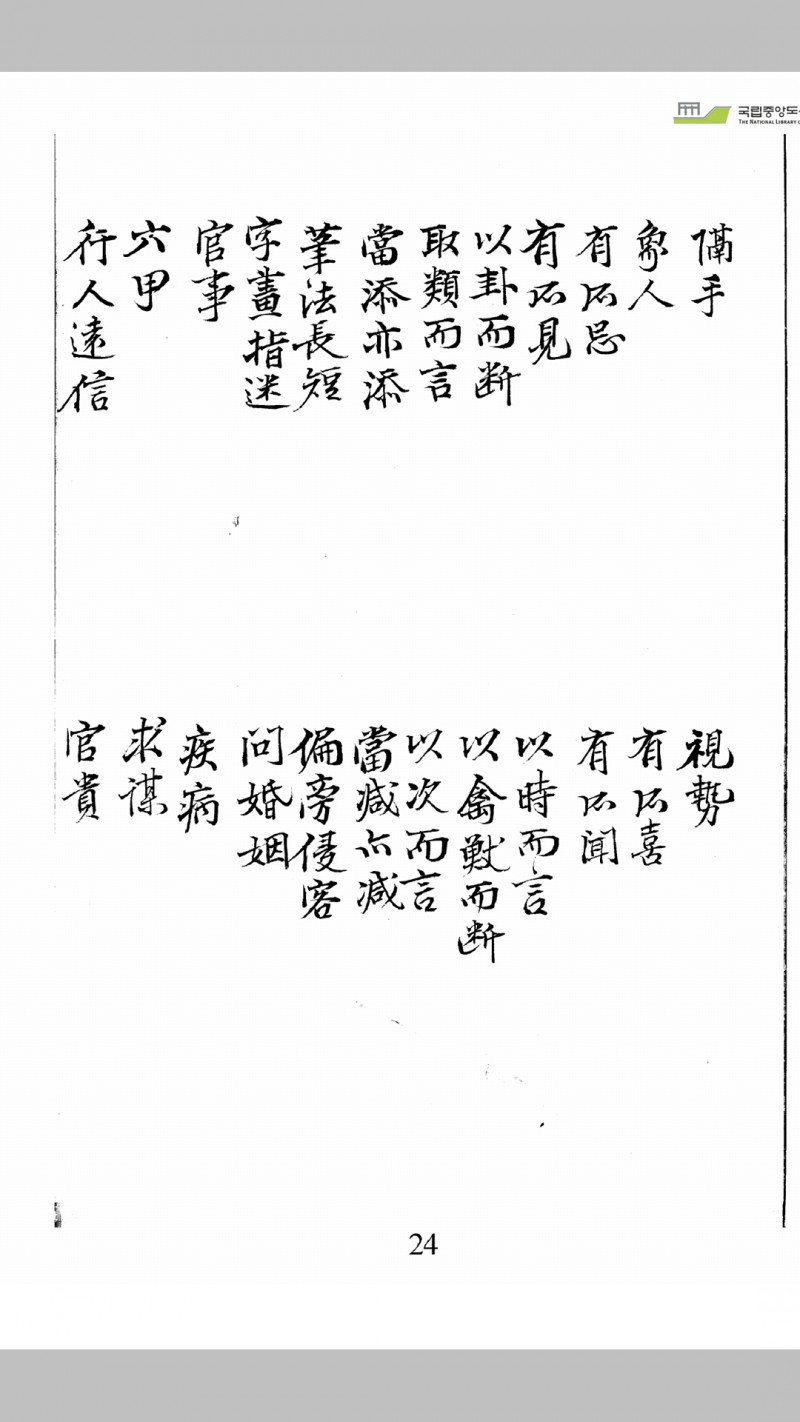 국립중앙도
THE NATIONAL LIBRARY
隔手
視勢
象人
有所喜
有所忌
有所聞
有所見
以時而言
以卦而断
以禽獣而断
取類而言
以次而言
當添亦添
當减亦减
筆法長短
偏旁侵客
字畫指迷
問婚姻
官事
疾病
六甲
求謀
行人遠信
官貴
24